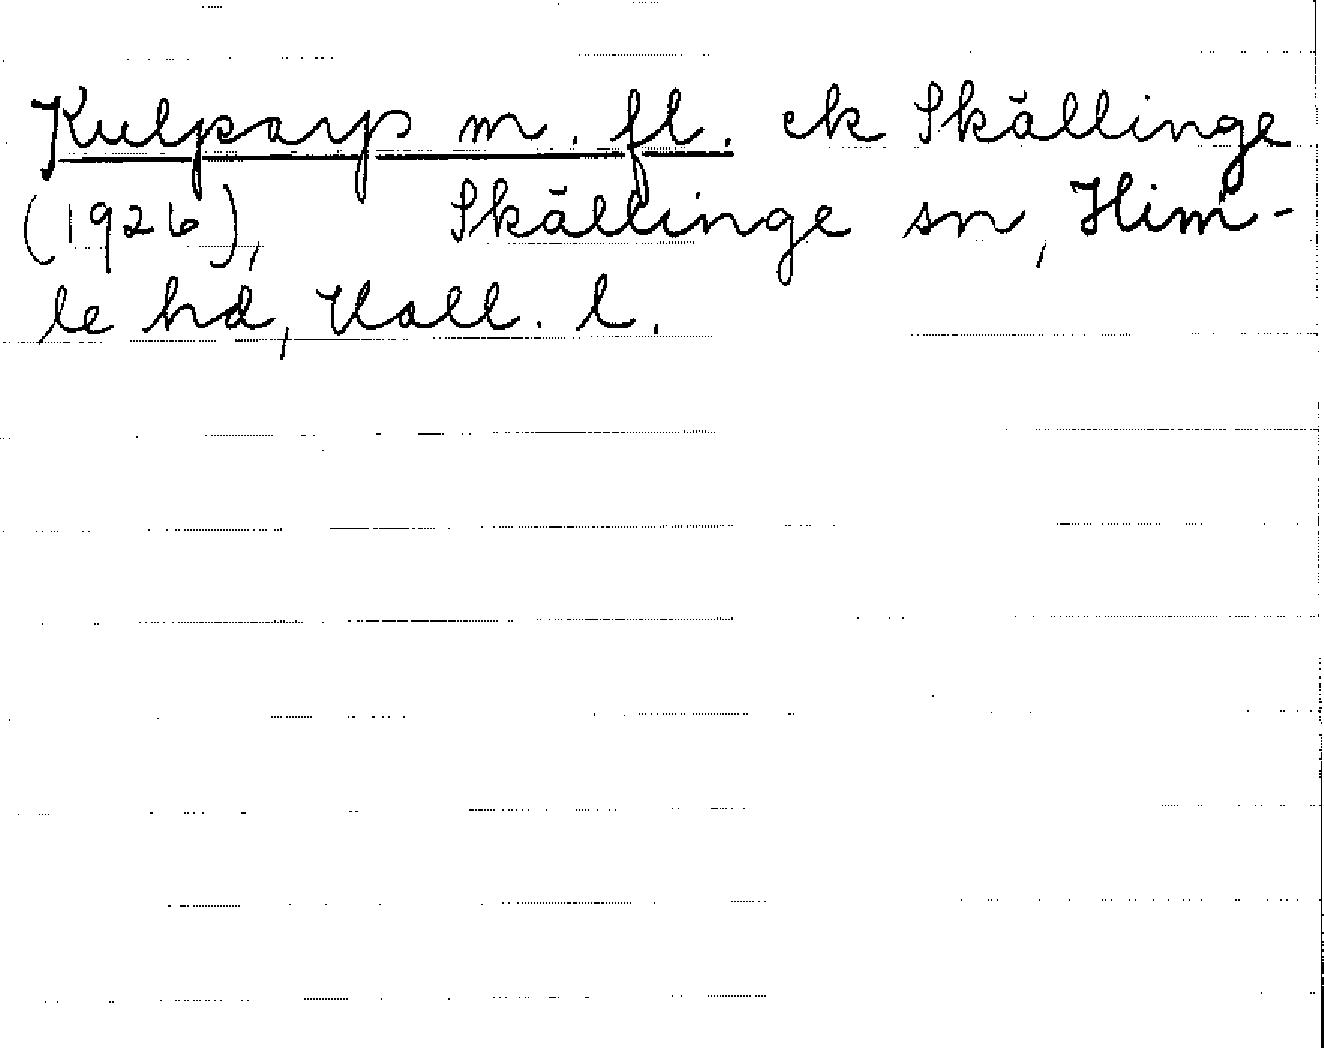 Kulparp m. fl. ek Skällinge
(1926), Skällinge sn, Him-
le hd, Hall. l.